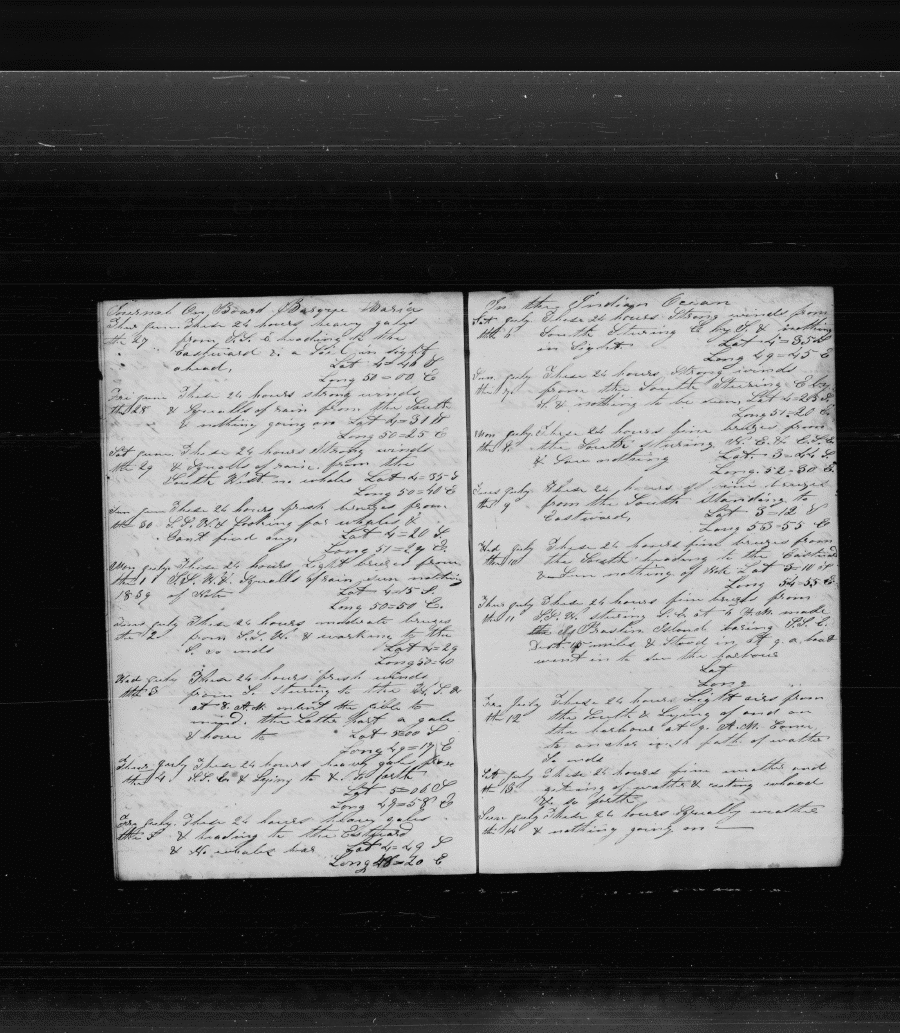 Journal On Board Barque Maria
Thur june These 24 hours heavy gales
th 27 from S.S.E heading to the
Eastward & a Sail in sight
ahead, Lat 4=40 S
Long 50=00 E
Fri june These 24 hours strong winds
the 28 & Squalls of rain from the South
& nothing going on Lat 4=31 S
Long 50=25 E
Sat june These 24 hours Strong winds
the 29 & Squalls of rain from the
South West no whales Lat 4=35 S
Long 50=40 E
Sun june These 24 hours fresh breezes from
the 30 S.S.W & looking for whales &
Cant find any Lat 4=20 S.
Long 51=29 E.
Mon july These 24 hours Light breezes from
the 1 S.S.W. & Squalls of rain seen nothing
1839 of Note Lat 4=15 S.
Long 50=50 E.
Tues july These 24 hours moderate breezes
the 2 from S.S.W. & working to the
S. so ends Lat 4=29
Long 50=40
Wed july These 24 hours fresh winds
the 3 from S. stering to the
at 8 A.M.
mind. the Latter Part a gale
& hove to Lat 5=00 S
Long 49=17 E
Thur july These 24 hours heavy gales from
the 4 S.S.E. & Lying to & so forth
Lat 5=06 S
Long 49=58 E
Fri july These 24 hours heavy gales
the 5 & heading to the Eastward
& No whales Lat 4=49 S
Long 48=20 E
In the Indian Ocean
Sat july These 24 hours Strong winds from
the 6 South Stering E by S. & nothing
in Sight. Lat 4=35 S
Long 49=45 E
Sun july These 24 hours Strong winds
the 7 from the South Stering E by
S. & nothing to be seen, Lat 4=25 S
Long 51=20 E
Mon july These 24 hours fine breezes from
the 8 the South Stering N.E. &
& Saw nothing Lat 3=44 S.
Long. 52=30 E.
Tues july These 24 hours of fine breezes
the 9 from the South Standing to
Eastward, Lat 3=12 S
Long 53=55 E
Wed july These 24 hours fine breezes from
the 10 the South heading to the Eastward
& Seen nothing of Note Lat 3=10 S
Long 54=55 E.
Thur july These 24 hours fine breezes from
the 11 S.S.W. stering at 4 P.M. made
the Praslin Island baring S.S.E.
Dist 15 miles & Stood in at 9 a, boat
went in to See the harbour
Lat
Long
Fri july These 24 hours Light airs from
the 12 the South & Lying of and on
the harbour at 9. A.M. Come,
to anchor in 14 fath of watter
So ends
Sat july These 24 hours fine weather and
th 13 geting of watter & cuting whood
& so forth
Sun july These 24 hours Squally weather
the 14 & nothing going on